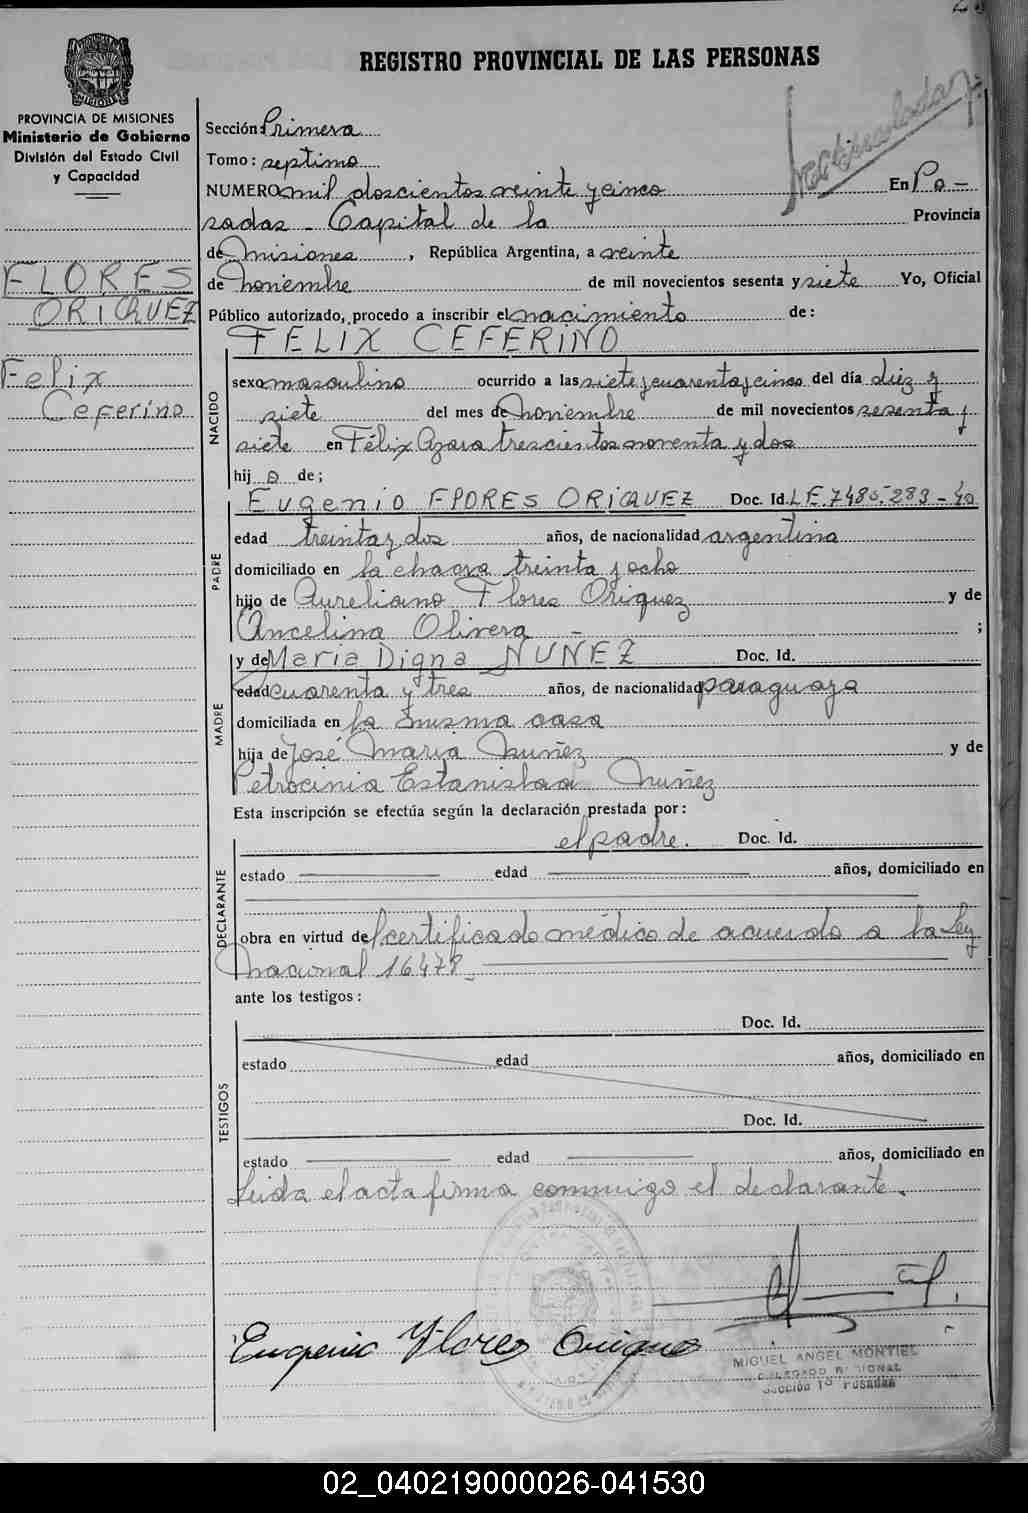 REGISTRO PROVINCIAL DE LAS PERSONAS
PROVINCIA DE MISIONES
Ministerio de Gobierno
División del Estado Civil
y Capacidad
FLORES
ORIQUEZ
Felix
Ceferino
Sección: Primera
Tomo: septimo
NUMERO mil doscientos veinte y cinco En Po-
sadas - Capital de la Provincia
de Misiones, República Argentina, a veinte
de Noviembre de mil novecientos sesenta y siete Yo, Oficial
Público autorizado, procedo a inscribir el nacimiento de:
NACIDO
FELIX CEFERINO
sexo masculino ocurrido a las siete y cuarenta y cinco del día diez y
siete del mes de Noviembre de mil novecientos sesenta y
siete en Félix Azara trescientos noventa y dos
hij o de;
PADRE
Eugenio FLORES ORIQUEZ Doc. Id. L.E. 7.485.283-
edad treinta y dos años, de nacionalidad argentina
domiciliado en la chacra treinta y ocho
hijo de Aureliano Flores Oriquez y de
Ancelina Olivera - ;
MADRE
y de Maria Digna NUÑEZ Doc. Id.
edad cuarenta y tres años, de nacionalidad paraguaya
domiciliada en la misma casa
hija de José Maria Nuñez y de
Petrocinia Estanislaa Nuñez
Esta inscripción se efectúa según la declaración prestada por:
DECLARANTE
el padre. Doc. Id.
estado edad años, domiciliado en
obra en virtud del certificado médico de acuerdo a la Ley
Nacional 16478
ante los testigos:
TESTIGOS
Doc. Id.
estado edad años, domiciliado en
Doc. Id.
estado edad años, domiciliado en
Leida el acta firma conmigo el declarante.
Eugenio Flores Orique
MIGUEL ANGEL MONTIEL
DELEGADO REGIONAL
Sección 1ª Posadas
02_040219000026-041530